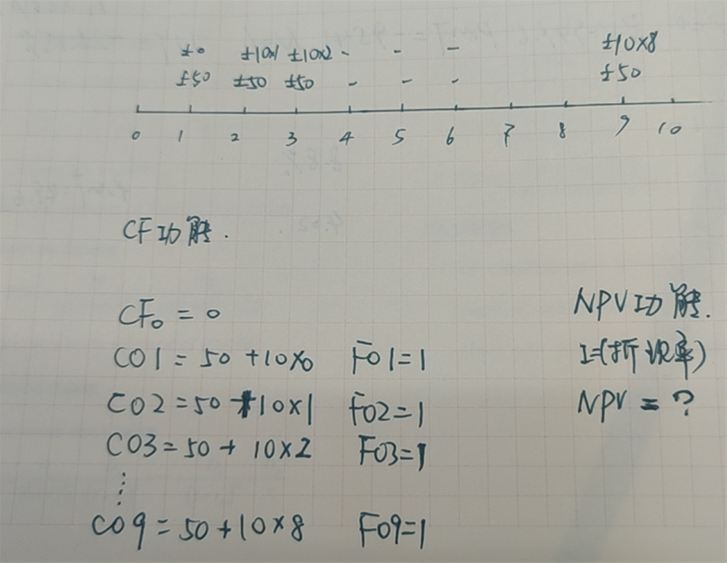 ±0 ±10×1 ±10×2 - - - ±10×8
±50 ±50 ±50 - - - ±50
0 1 2 3 4 5 6 7 8 9 10
CF功能.
CF₀ = 0
C01 = 50 + 10×0 F01=1
C02 = 50 + 10×1 F02=1
C03 = 50 + 10×2 F03=1
⋮
C09 = 50 + 10×8 F09=1
NPV功能.
I=(折现率)
NPV = ?